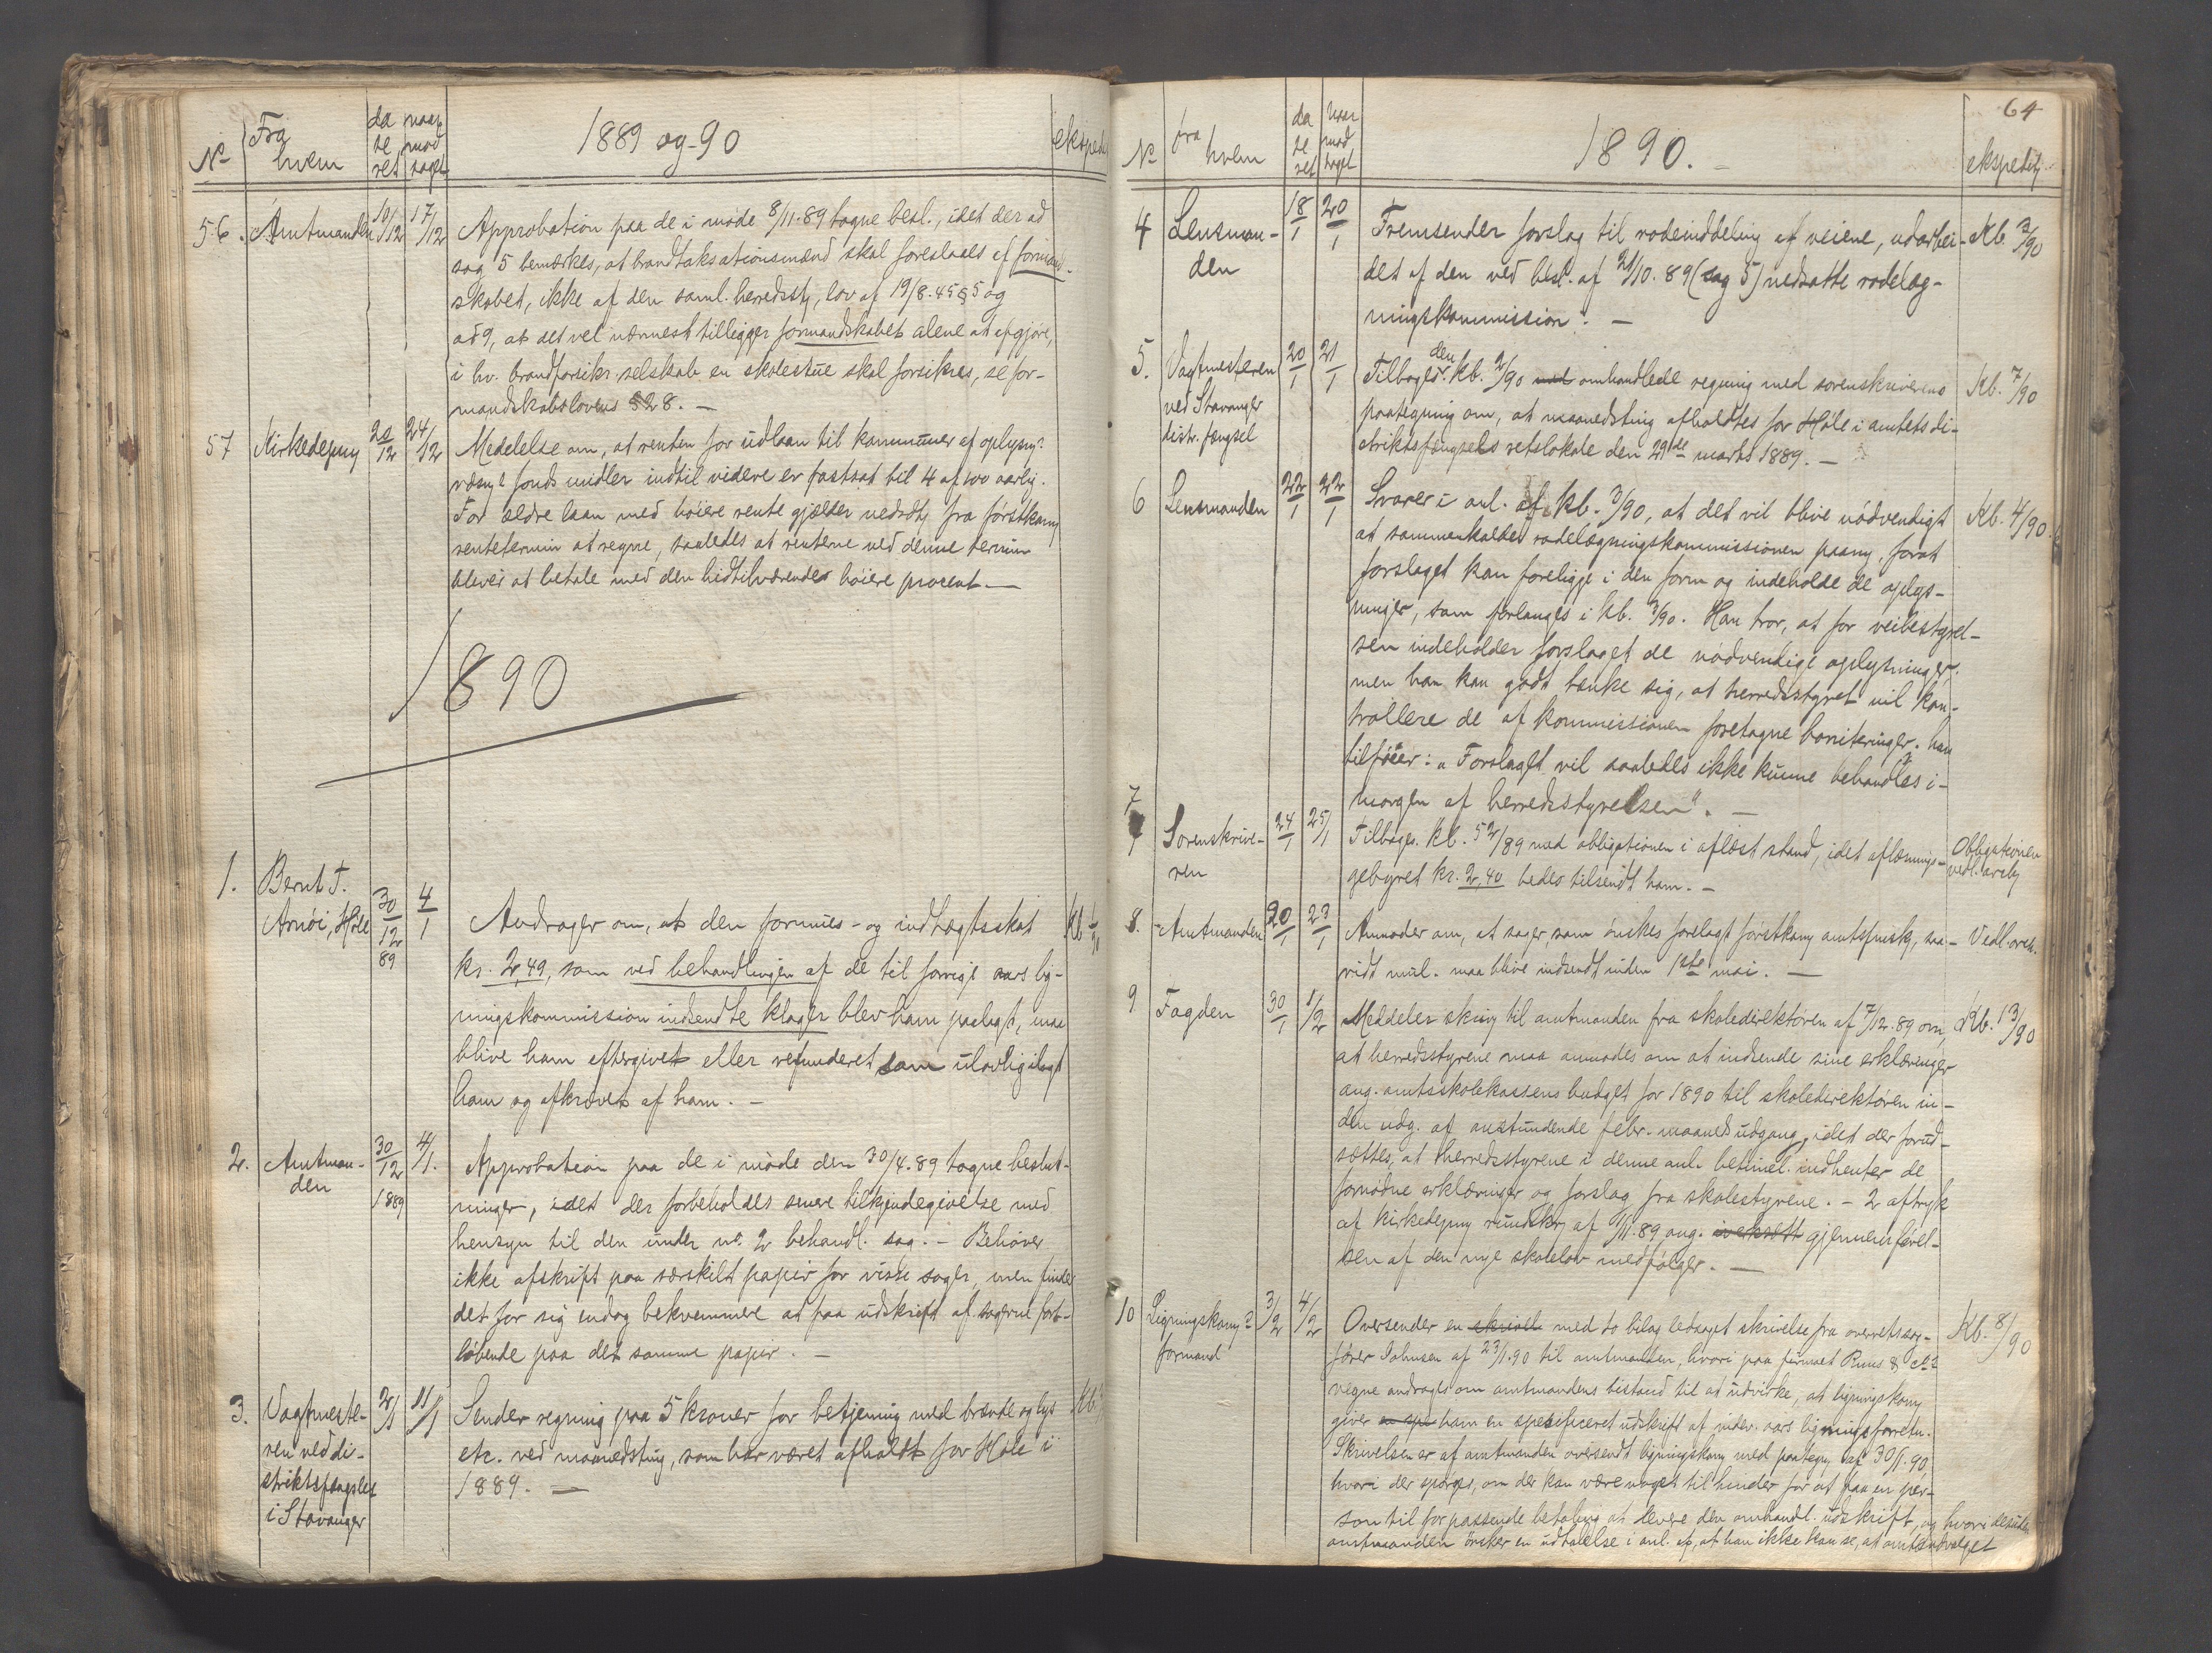 No Fra hvem da te ret naar mod taget 1889 og 90 eksped
56. Amtmanden 10/12 17/12 Approbation paa de i møde 8/11.89 tagne besl., idet der ad
sag 5 bemærkes, at brandtaksationsmænd skal foreslaaes af formand-
skabet, ikke af den saml. herredssty, lov af 19/8.45 § 5 og
ad 9, at det vel nærmest tilligger formandskabet alene at afgjøre,
i hv. brandforsikr. selskab en skolestue skal forsikres, se for-
mandskabslovens § 28. —
57 Kirkedepmg 20/12 24/12 Meddelelse om, at renten for udlaan til kommuner af oplysn?
væsn? fonds midler indtil videre er fastsat til 4 af 100 aarlig.
For ældre laan med høiere rente gjælder nedsætt fra førstkomg
rentetermin at regne, saaledes at renterne ved denne termin
bliver at betale med den hidtilværende høiere procent. —
1890
1. Bernt T.
Arnøi, Høle 30/12 89 4/1 Andrager om, at den formues- og indtægtsskat Kb 1/90
kr. 2,49, som ved behandlingen af de til forrige aars lig-
ningskommission indsendte klager blev ham paalagt, maa
blive ham eftergivet eller refunderet som ulovlig ilagt
ham og afkrævet af ham. —
2. Amtman-
den 30/12 1889 4/1. Approbation paa de i møde den 30/4.89 tagne beslut-
ninger, idet der forbeholdes senere tilkjendegivelse med
hensyn til den under no. 2 behandl. sag. — Behøver
ikke afskrift paa særskilt papir for visse sager, men finder
det for sig endog bekvemmere at faa udskrift af sagerne fort-
løbende paa det samme papir. —
3. Vagtmeste-
ren ved di-
striktsfængslet
i Stavanger 2/1 11/1 Sender regning paa 5 kroner for betjening med brænde og lys Kb
etc. ved maanedsting, som har været afholdt for Høle i
1889. —
64
No fra hvem da te ret naar mod taget 1890. — ekspedit
4 Lensman-
den 18/1 20/1 Fremsender forslag til rodeinddeling af veiene, udarbei- Kb. 2/90
det af den ved besl. af 21/10.89 (sag 5) nedsatte rodelæg-
ningskommission. —
5. Vagtmesteren
ved Stavanger
distr. fængsel 20/1 21/1 Tilbages. den kb. 2/90 omhandlede regning med sorenskriverens Kb. 7/90
paategning om, at maanedsting afholdtes for Høle i amtets di-
striktsfængsels retslokale den 29de marts 1889. —
6 Lensmanden 22/1 22/1 Svarer i anl. af kb. 3/90, at det vil blive nødvendigt Kb. 4/90.
at sammenkalde rodelægningskommissionen paany, forat
forslaget kan foreligge i den form og indeholde de oplys-
ninger, som forlanges i kb. 3/90. Han tror, at for veibestyrel-
sen indeholder forslaget de nødvendige oplysninger,
men han kan godt tænke sig, at herredsstyret vil kon-
trollere de af kommissionen foretagne boniteringer. han
tilføier: „Forslaget vil saaledes ikke kunne behandles i-
morgen af herredsstyrelsen“. —
7 Sorenskrive-
ren 24/1 25/1 Tilbages. kb. 52/89 med obligationen i aflæst stand, idet aflæsnings- Obligationen
gebyret kr. 2,40 bedes tilsendt ham. — vedl. arch
8. Amtmanden 20/1 23/1 Anmoder om, at sager, som ønskes forelagt førstkomg amtsfmsk, saa- Vedl. arch.
vidt mul. maa blive indsendt inden 1ste mai. —
9 Fogden 30/1 1/2 Meddeler skriv til amtmanden fra skoledirektøren af 7/12.89 om, Kb. 13/90
at herredsstyrene maa anmodes om at indsende sine erklæringer
ang. amtsskolekassens budget for 1890 til skoledirektøren in-
den udg. af anstundende febr. maaneds udgang, idet der forud-
sættes, at herredsstyrene i denne anl. betimel. indhenter de
fornødne erklæringer og forslag fra skolestyrene. — 2 aftryk
af kirkedepmg rundskr. af 1/11.89 ang. gjennemførel-
sen af den nye skolelov medfølger. —
10 Ligningskomg?
formand 3/2 4/2 Oversender en skrivelse med to bilag ledsaget skrivelse fra overretssag- Kb. 8/90
fører Johnsen af 23/1.90 til amtmanden, hvori paa firmaet Ruus & Co?
vegne andrages om amtmandens bistand til at udvirke, at ligningskomg
giver en spe ham en spesificeret udskrift af nærv. aars ligningsforretn.
Skrivelsen er af amtmanden oversendt ligningskomg med paategn af 30/1.90,
hvori der spørges, om der kan være noget til hinder for at faa en per-
son til for passende betaling at levere den omhandl. udskrift, og hvori desuden
amtmanden ønsker en udtalelse i anl. af, at han ikke kan se, at amtsudvalget